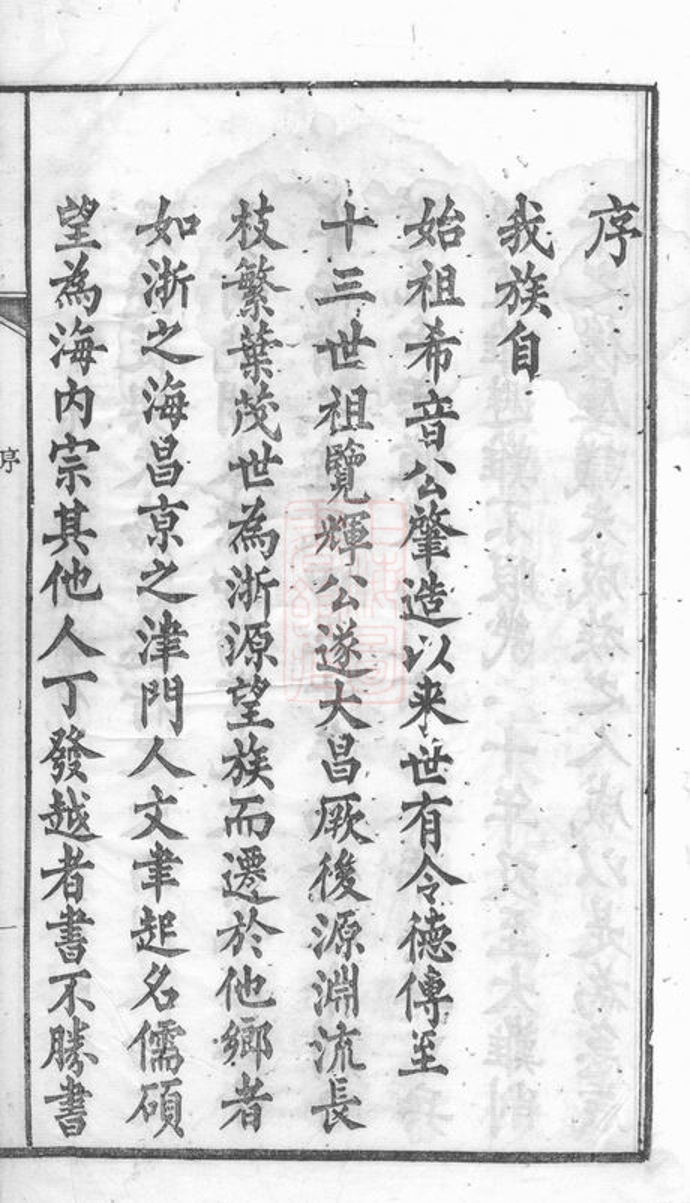 序
我族自
始祖希音公肇造以来世有令德傳至
十三世祖覽輝公遂大昌厥後源淵流長
枝繁葉茂世為浙源望族而遷於他鄉者
如浙之海昌京之津門人文聿起名儒碩
望為海内宗其他人丁發越者書不勝書
序